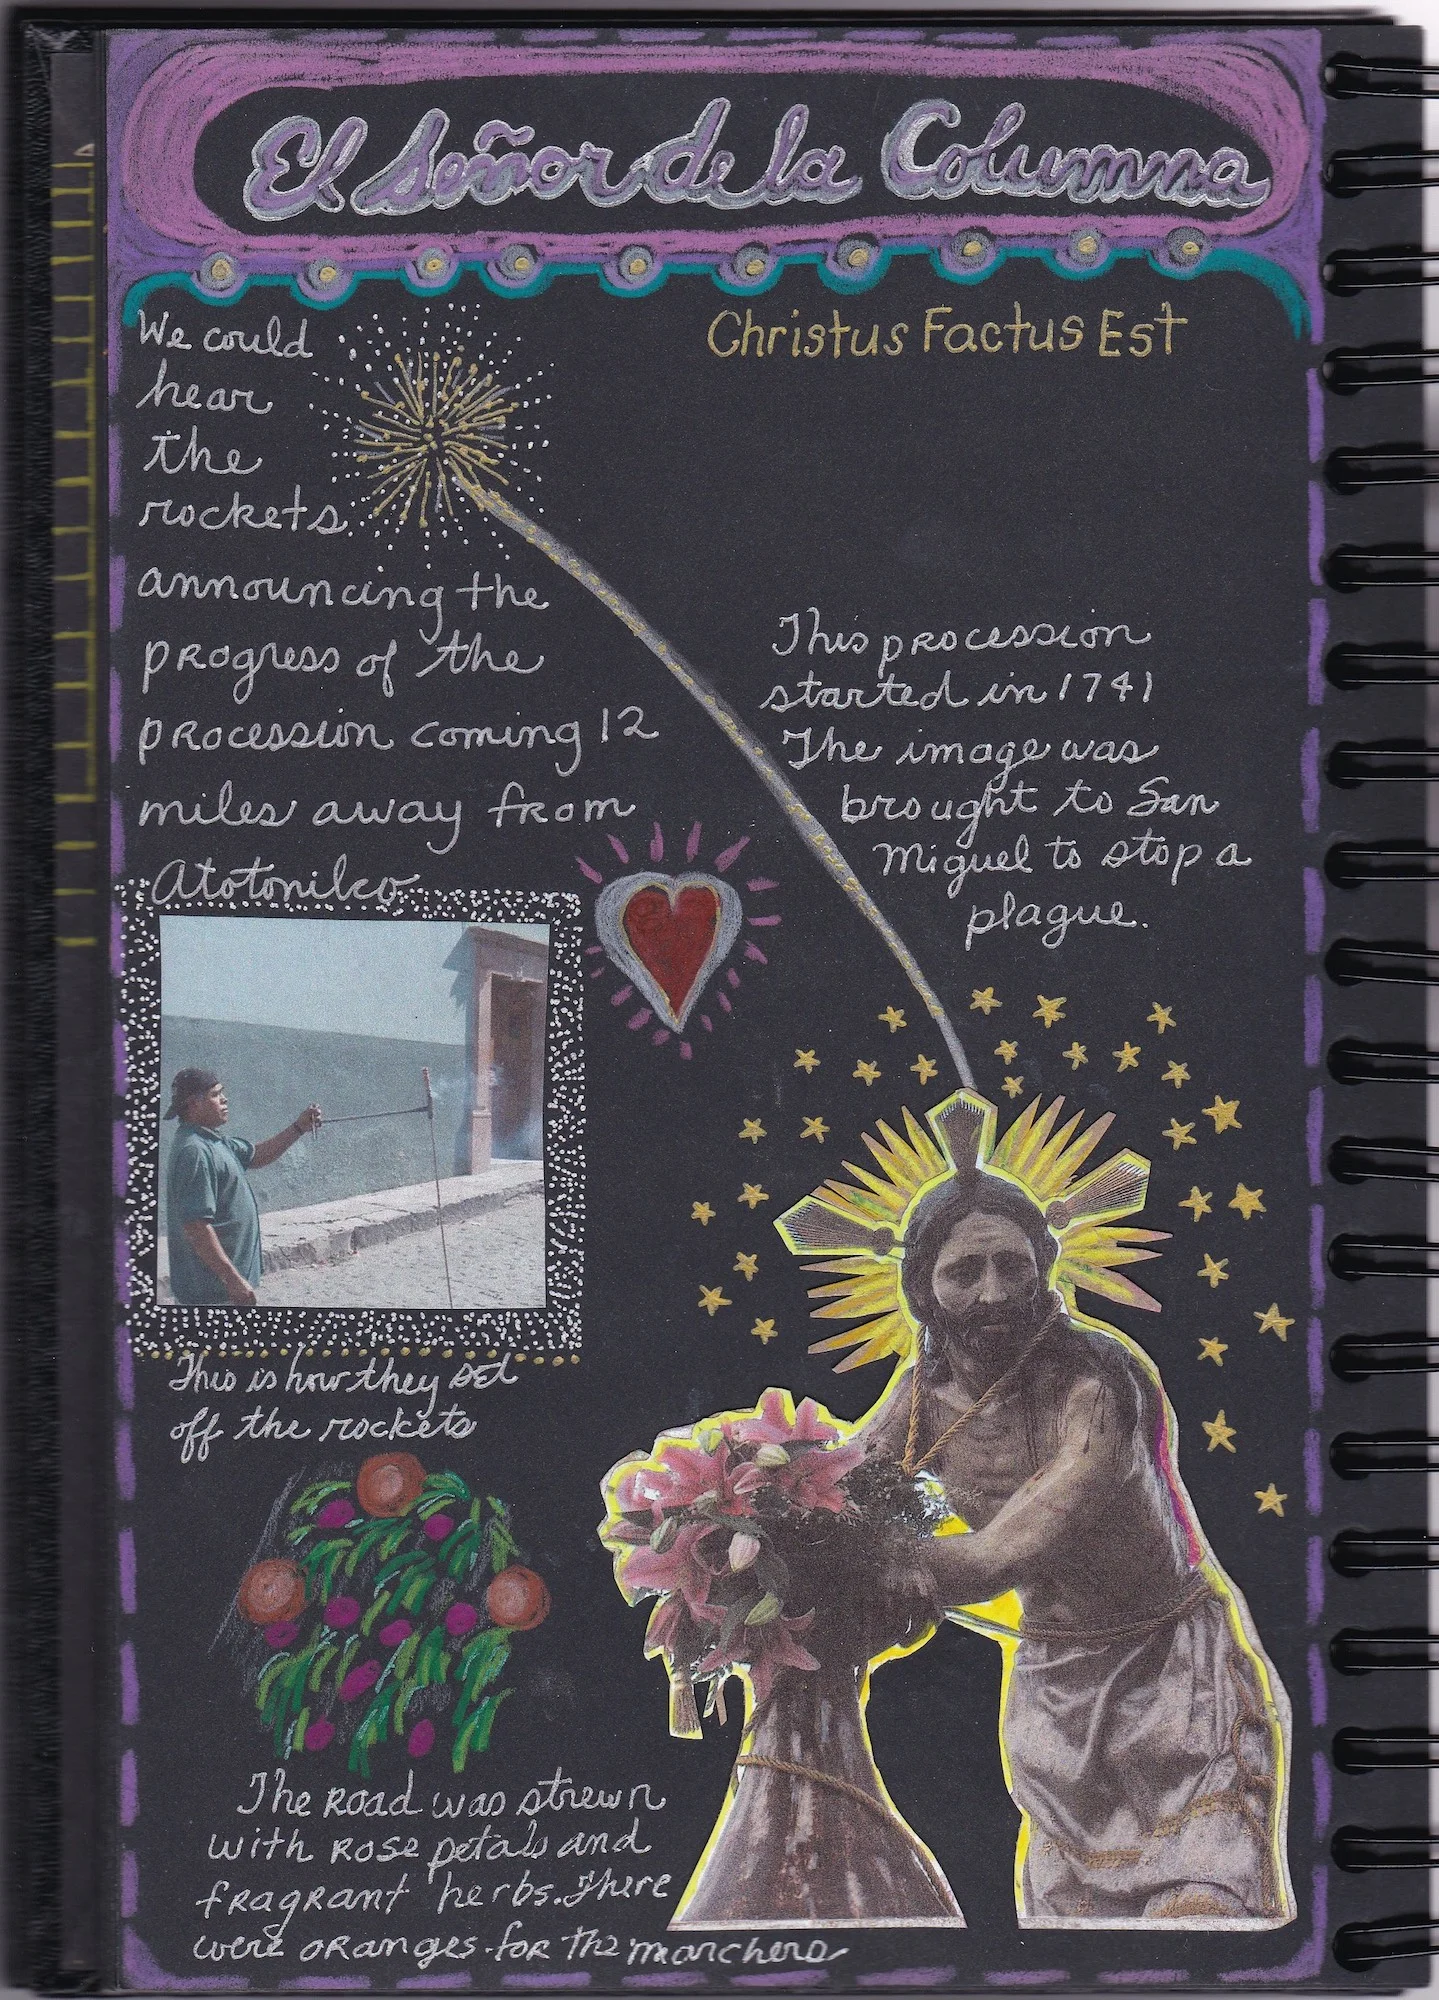 El Señor de la Columna
Christus Factus Est
We could
hear
the
rockets
announcing the
progress of the
procession coming 12
miles away from
Atotonilco
This procession
started in 1741
The image was
brought to San
Miguel to stop a
plague.
This is how they set
off the rockets
The road was strewn
with rose petals and
fragrant herbs. There
were oranges for the marchers